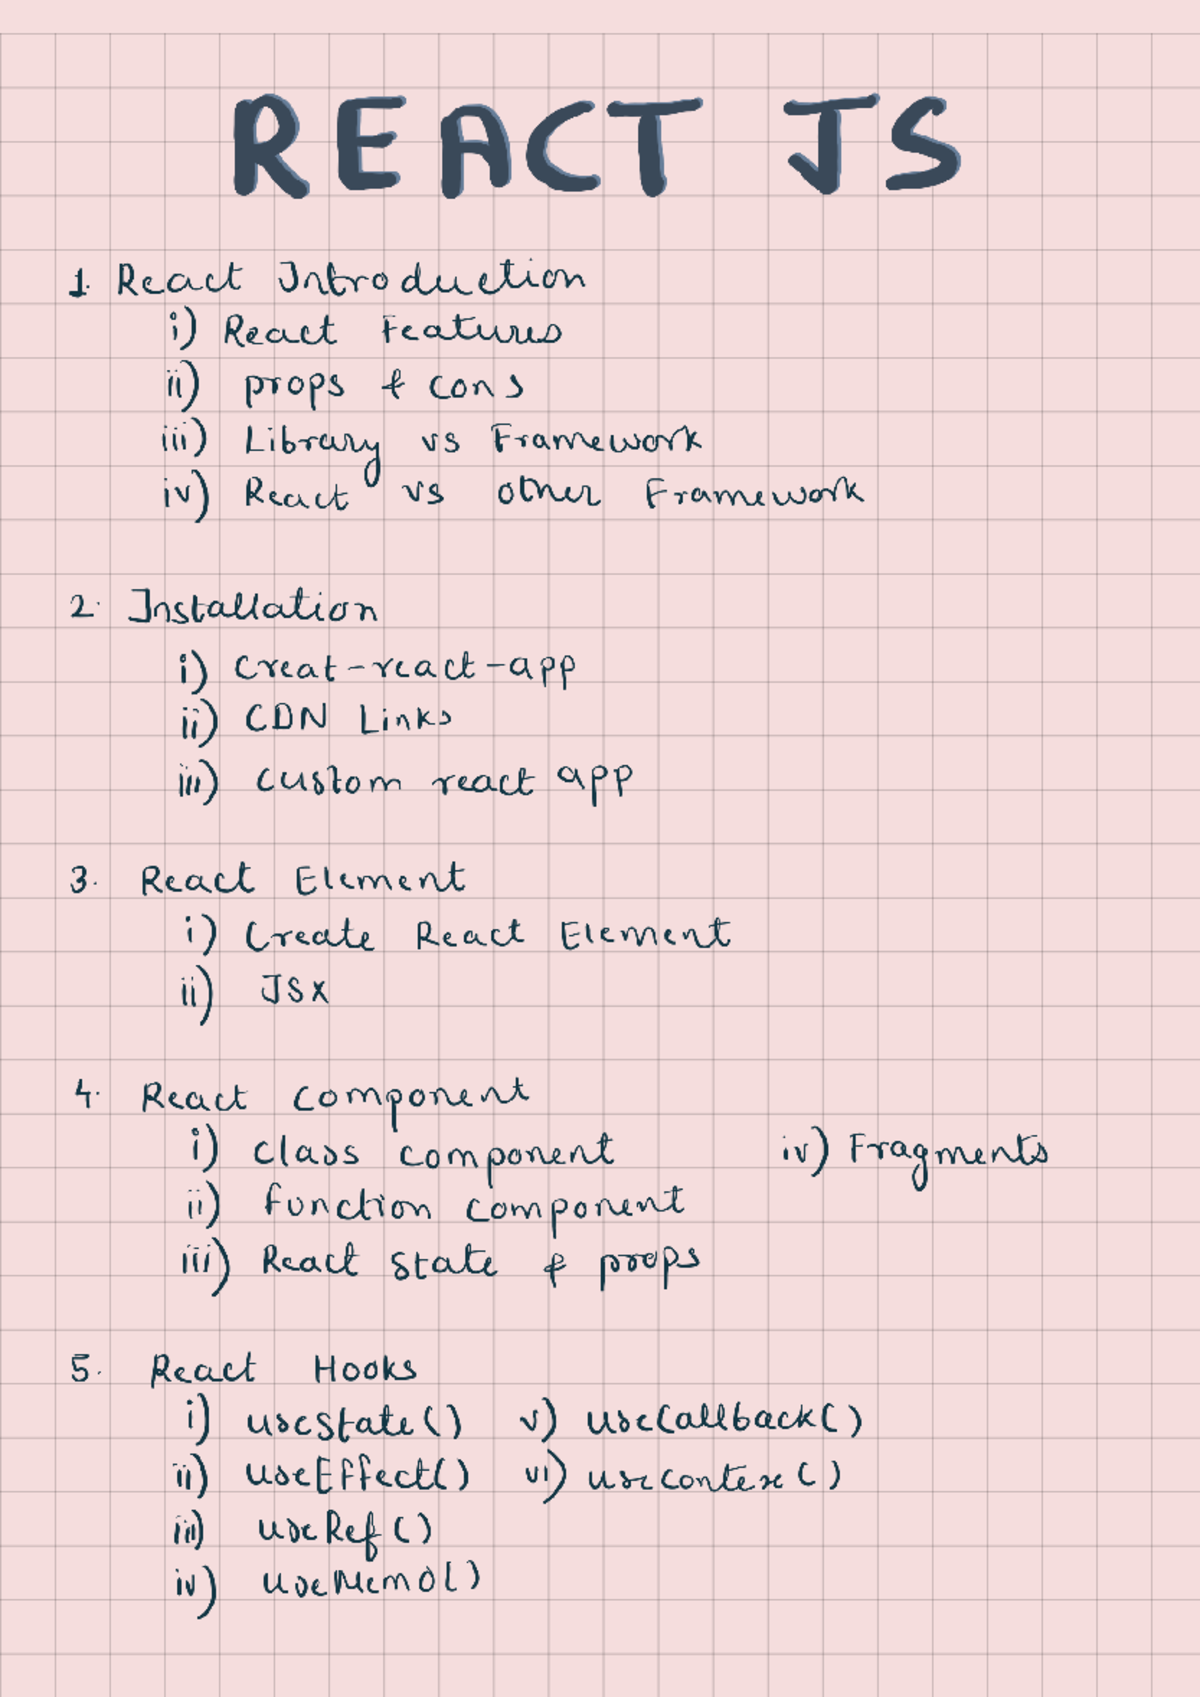 REACT JS
1. React Introduction
i) React Features
ii) props & cons
iii) Library vs Framework
iv) React vs other Framework
2. Installation
i) Creat-react-app
ii) CDN Links
iii) custom react app
3. React Element
i) Create React Element
ii) JSX
4. React Component
i) class component iv) Fragments
ii) function component
iii) React state & props
5. React Hooks
i) useState() v) useCallback()
ii) useEffect() vi) useContex()
iii) useRef()
iv) useMemo()